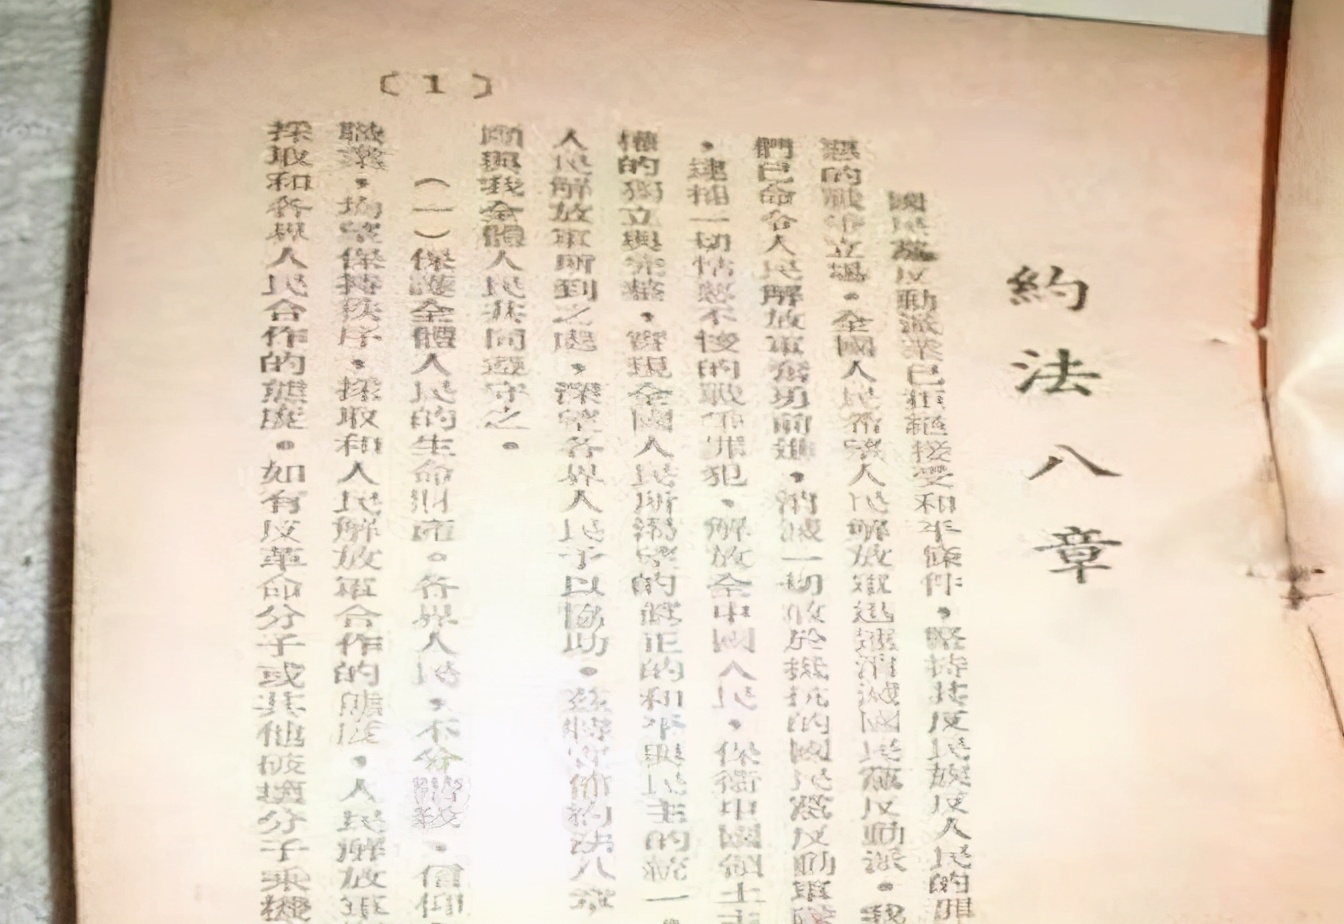 約法八章
國民黨反動派業已拒絕接受和平條件，堅持其反民族反人民的罪
惡的戰爭立場。全國人民希望人民解放軍迅速消滅國民黨反動派。我
們已命令人民解放軍奮勇前進，消滅一切敢於抵抗的國民黨反動軍隊
，逮捕一切怙惡不悛的戰爭罪犯，解放全中國人民，保衛中國領土主
權的獨立與完整，實現全國人民所渴望的真正的和平與民主的統一。
人民解放軍所到之處，深望各界人民予以協助。茲特宣佈約法八章
願與我全體人民共同遵守之。
（一）保護全體人民的生命財產。各界人民，不分階級，信仰
職業，均望保持秩序，採取和人民解放軍合作的態度，人民解放軍
採取和各界人民合作的態度。如有反革命分子或其他破壞分子乘機
〔1〕